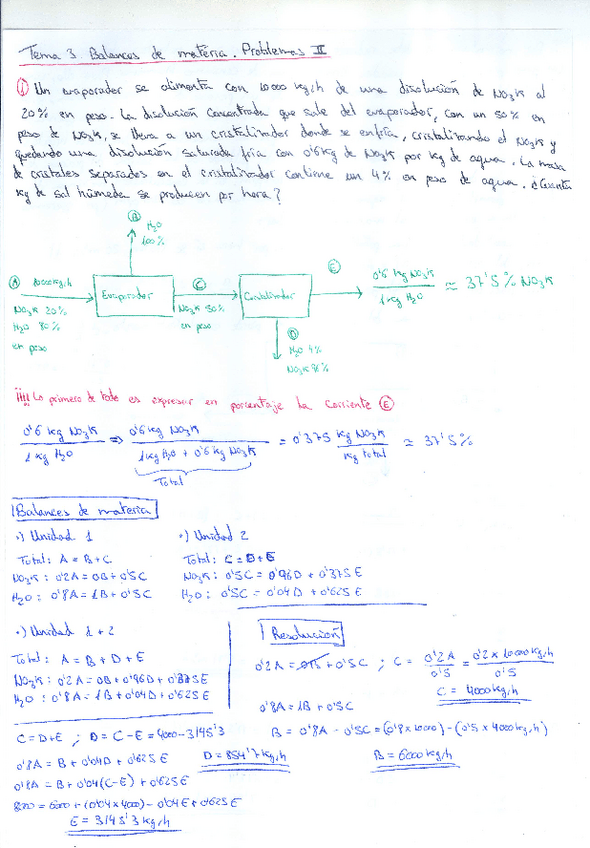 Tema 3 Balances de materia. Problemas II
① Un evaporador se alimenta con 10000 kg/h de una disolución de NO₃K al
20% en peso. La disolución concentrada que sale del evaporador, con un 50% en
peso de NO₃K, se lleva a un cristalizador donde se enfría, cristalizando el NO₃K y
quedando una disolución saturada fría con 0'6 kg de NO₃K por kg de agua. La masa
de cristales separados en el cristalizador contiene un 4% en peso de agua. ¿Cuantos
kg de sal húmeda se producen por hora?
Ⓑ
H₂O
100%
Ⓐ 10000 kg/h
Evaporador
Ⓒ
Cristalizador
Ⓔ
0'6 kg NO₃K / 1 kg H₂O ≈ 37'5% NO₃K
NO₃K 20%
H₂O 80%
en peso
NO₃K 50%
en peso
Ⓓ
H₂O 4%
NO₃K 96%
¡¡¡¡ Lo primero de todo es expresar en porcentaje la corriente Ⓔ
0'6 kg NO₃K / 1 kg H₂O ⇒ 0'6 kg NO₃K / 1 kg H₂O + 0'6 kg NO₃K = 0'375 kg NO₃K / kg total ≈ 37'5%
Total
Balances de materia
·) Unidad 1
Total: A = B + C
NO₃K: 0'2A = 0B + 0'5C
H₂O: 0'8A = 1B + 0'5C
·) Unidad 2
Total: C = D + E
NO₃K: 0'5C = 0'96D + 0'375E
H₂O: 0'5C = 0'04D + 0'625E
·) Unidad 1 + 2
Total: A = B + D + E
NO₃K: 0'2A = 0B + 0'96D + 0'375E
H₂O: 0'8A = 1B + 0'04D + 0'625E
Resolución
0'2A = 0B + 0'5C ; C = 0'2A / 0'5 = 0'2 x 10000 kg/h / 0'5
C = 4000 kg/h
0'8A = 1B + 0'5C
B = 0'8A - 0'5C = (0'8 x 10000) - (0'5 x 4000 kg/h)
B = 6000 kg/h
C = D + E ; D = C - E = 4000 - 3145'3
D = 854'7 kg/h
0'8A = B + 0'04D + 0'625E
0'8A = B + 0'04(C-E) + 0'625E
8000 = 6000 + (0'04 x 4000) - 0'04E + 0'625E
E = 3145'3 kg/h